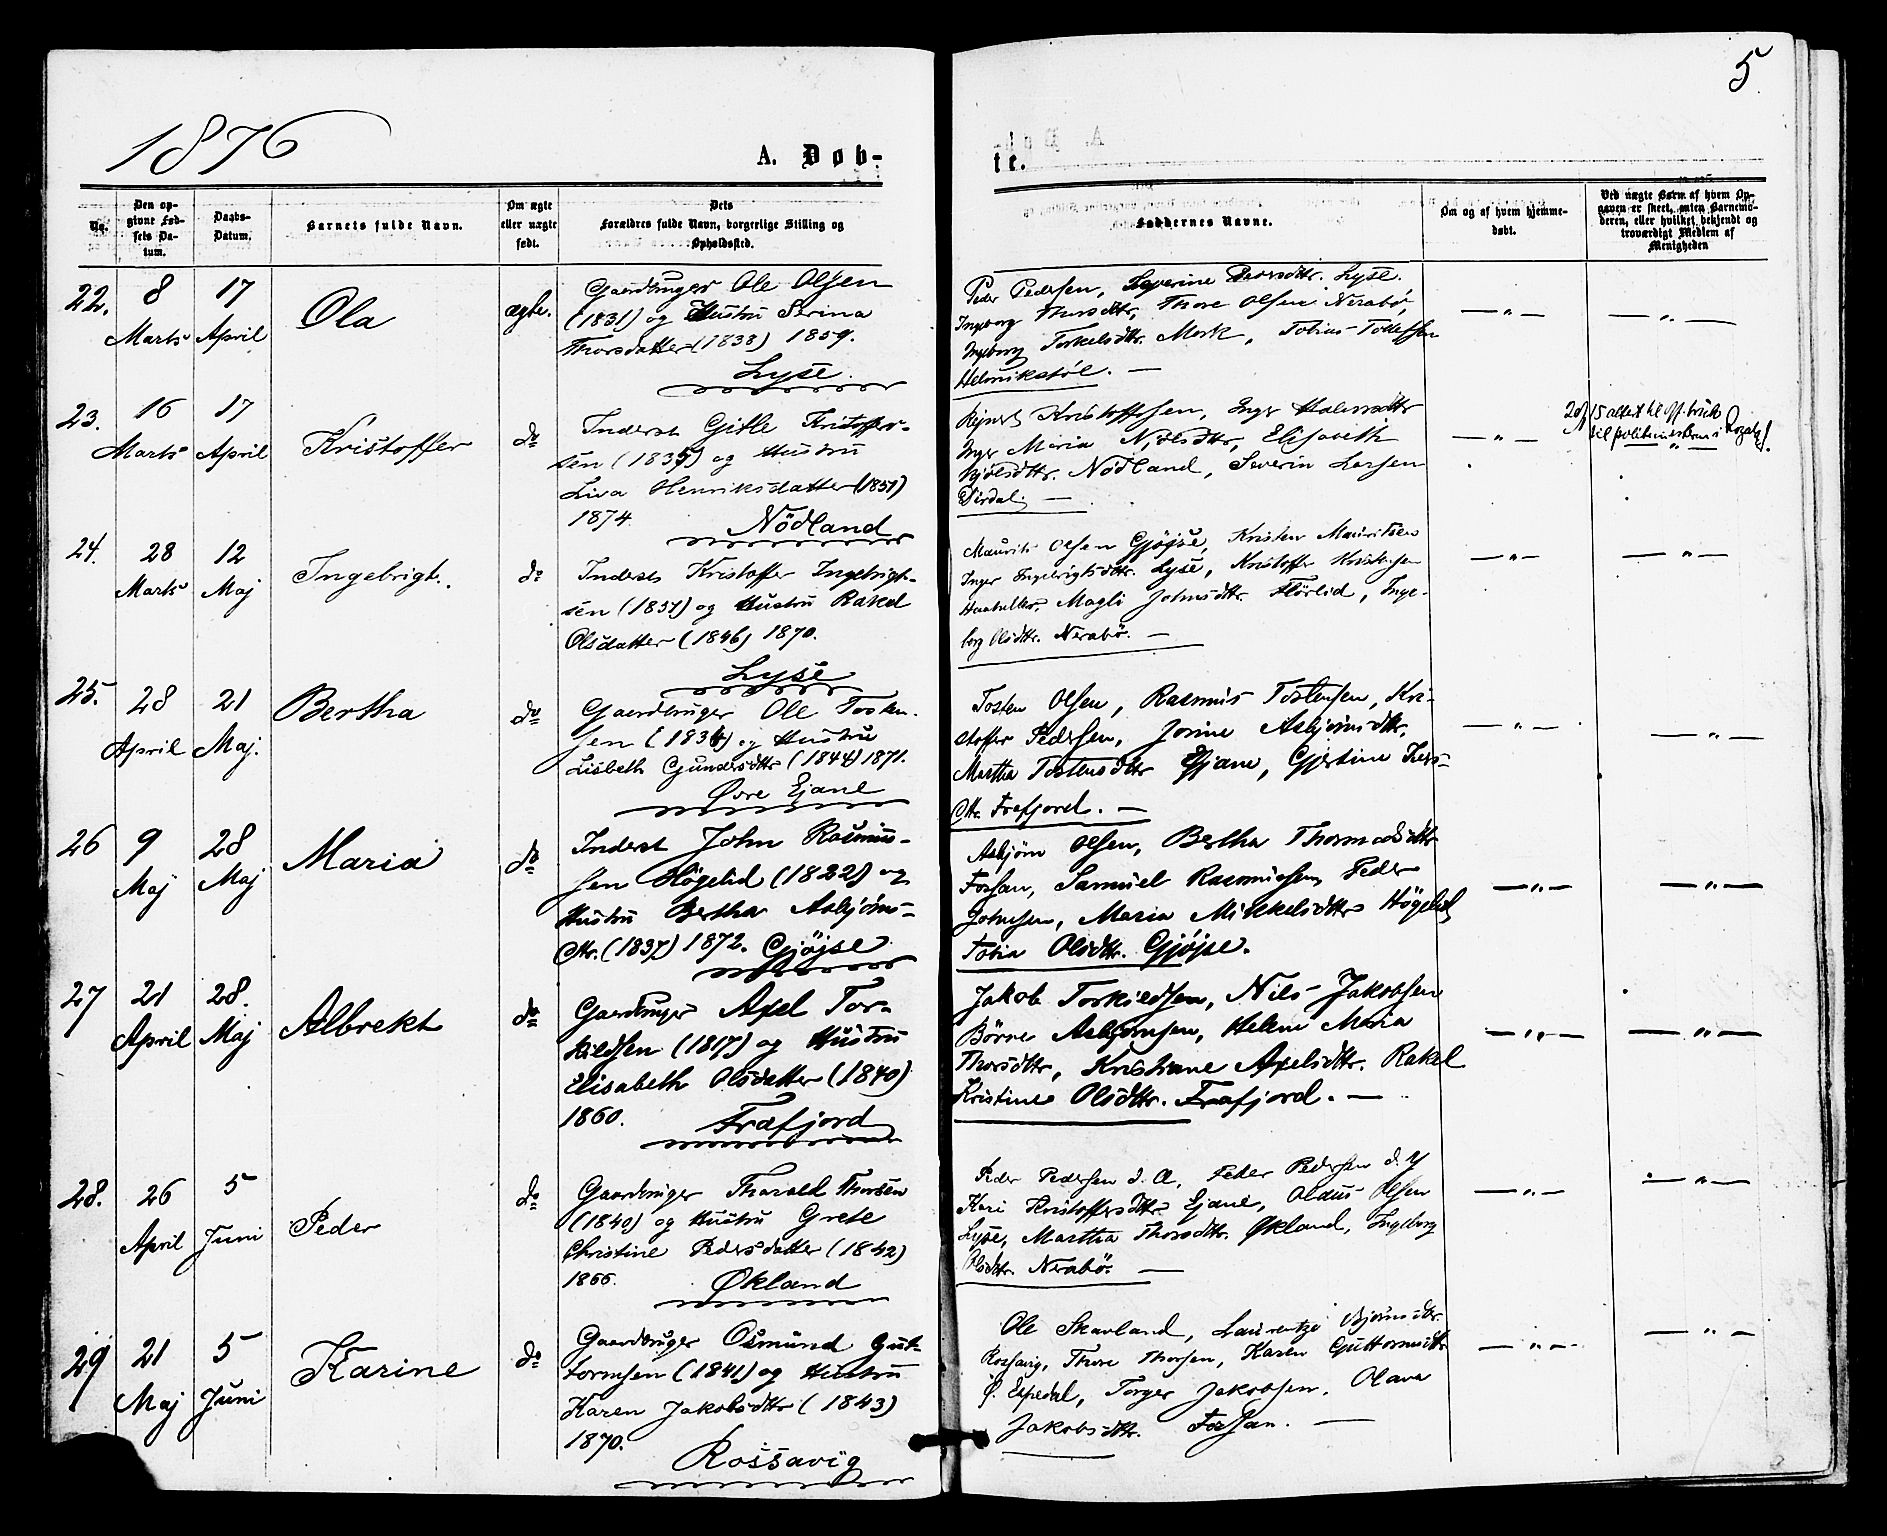 5
1876
A. Døb-
te.
No.
Den op-
givne Fød-
sels Da-
tum.
Daabs-
Datum.
Barnets fulde Navn.
Om ægte
eller uægte
født.
Dets
Forældres fulde Navn, borgerlige Stilling og
Opholdssted.
Faddernes Navne.
Om og af hvem hjemme-
døbt.
Ved uægte Børn af hvem Op-
gaven er skeet, enten Barnemo-
deren, eller hvilket bekjendt og
troværdigt Medlem af
Menigheden
22.
8
Marts
17
April
Ola
ægte.
Gaardbruger Ole Olsen
(1831) og Hustru Serina
Thorsdatter (1838) 1859.
Lyse.
Peder Pedersen, Severine Thorsdttr. Lyse.
Ingeborg Thorsdttr, Thore Olsen Nerabö,
Ingeborg Torkelsdttr. Mork, Tobias Tollefsen
Helmikstöl. —
— „ —
— „ —
23.
16
Marts
17
April
Kristoffer
do
Inderst Gitle Kristoffer-
sen (1835) og Hustru
Liva Henriksdatter (1851)
1874. Nödland
Kristoffersen, Inger
Inger Maria Njölsdttr, Elisabeth
Njölsdttr. Nödland, Severin Larsen
Sirdal. —
— „ —
— „ —
24.
28
Marts
12
Maj
Ingebrigt.
do
Inderst Kristoffer Ingebrigt-
sen (1837) og Hustru Rakel
Olsdatter (1846) 1870.
Lyse
Maurits Olsen Gjöjse, Kristen Mauritsen
Inger Ingebrigtsdttr. Lyse, Kristoffer Kristensen
Magli Johnsdttr. Hörlid, Inge-
borg Olsdttr. Nerabö. —
— „ —
— „ —
25.
28
April
21
Maj.
Bertha
do
Gaardbruger Ole Tosten-
sen (1834) og Hustru
Lisbeth Gundersdttr (1844) 1871.
Øvre Ejane
Tosten Olsen, Rasmus Tostensen, Kri-
stoffer Pedersen, Jorine Asbjörnsdttr.
Martha Tostensdttr Ejane, Gjertine Lars-
dttr. Frafjord. —
— „ —
— „ —
26
9
Maj
28
Maj
Maria
do
Inderst John Rasmus-
sen Högelid (1822) og
Hustru Bertha Asbjörns-
dttr. (1837) 1872. Gjöjse
Asbjörn Olsen, Bertha Thormodsdttr
Forsan, Samuel Rasmussen, Peder
Johnsen, Maria Mikkelsdttr Högelid,
Tobia Olsdttr. Gjöjse.
— „ —
— „ —
27
21
April
28.
Maj
Albrekt
do
Gaardbruger Axel Tor-
kildsen (1817) og Hustru
Elisabeth Olsdatter (1840)
1860. Frafjord
Jakob Torkildsen, Nils Jakobsen
Börne Asbjörnsen, Helene Maria
Thorsdttr, Kristiane Axelsdttr. Rakel
Kristine Olsdttr. Frafjord. —
— „ —
— „ —
28.
26
April
5
Juni
Peder
do
Gaardbruger Tharald Thorsen
(1840) og Hustru Grete
Christine Pedersdatter (1842)
1866. Økland
Peder Pedersen d. Æ, Peder Pedersen d. Y
Kari Kristoffersdttr. Ejane, Oldus Olsen
Lyse, Martha Thorsdttr. Økland, Ingeborg
Olsdttr. Nerabö. —
— „ —
— „ —
29
21
Maj
5
Juni
Karine
do
Gaardbruger Osmund Gut-
tormsen (1841) og Hustru
Karen Jakobsdttr (1843)
1870.
Rossavig
Ole Skavland, Laurentze Bjørnsdtr.
Rossavig, Thore Thorsen, Karen Guttormsdttr
Ø. Espedal, Torger Jakobsen. Olava
Jakobsdttr. Forsan. —
— „ —
— „ —